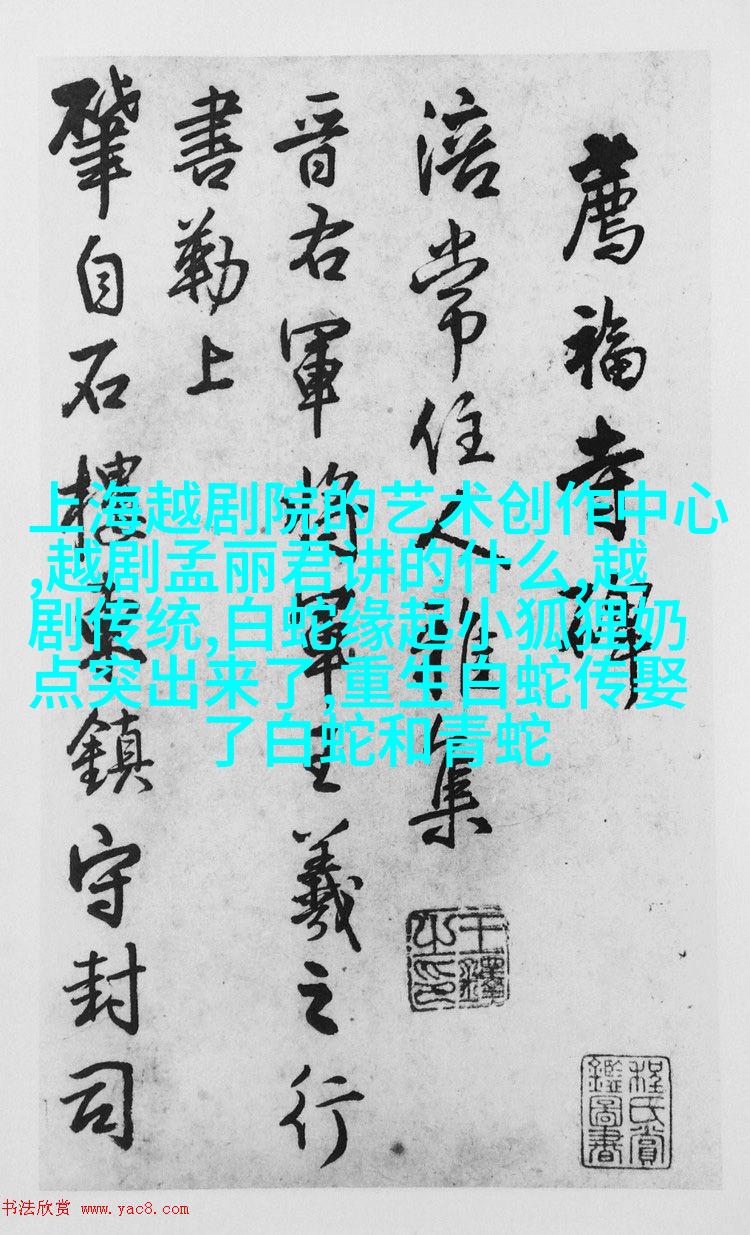 薦福寺
涪常住人雜集
晋右軍將軍王羲之行
書勒上
肇自石樓東鎮守封司
王鐸之印
程氏賞鑑圖書
上海越剧院的艺术创作中心
,越剧孟丽君讲的什么,越
剧传统,白蛇缘起小狐狸奶
点突出来了,重生白蛇传娶
了白蛇和青蛇
书法欣赏 www.yac8.com